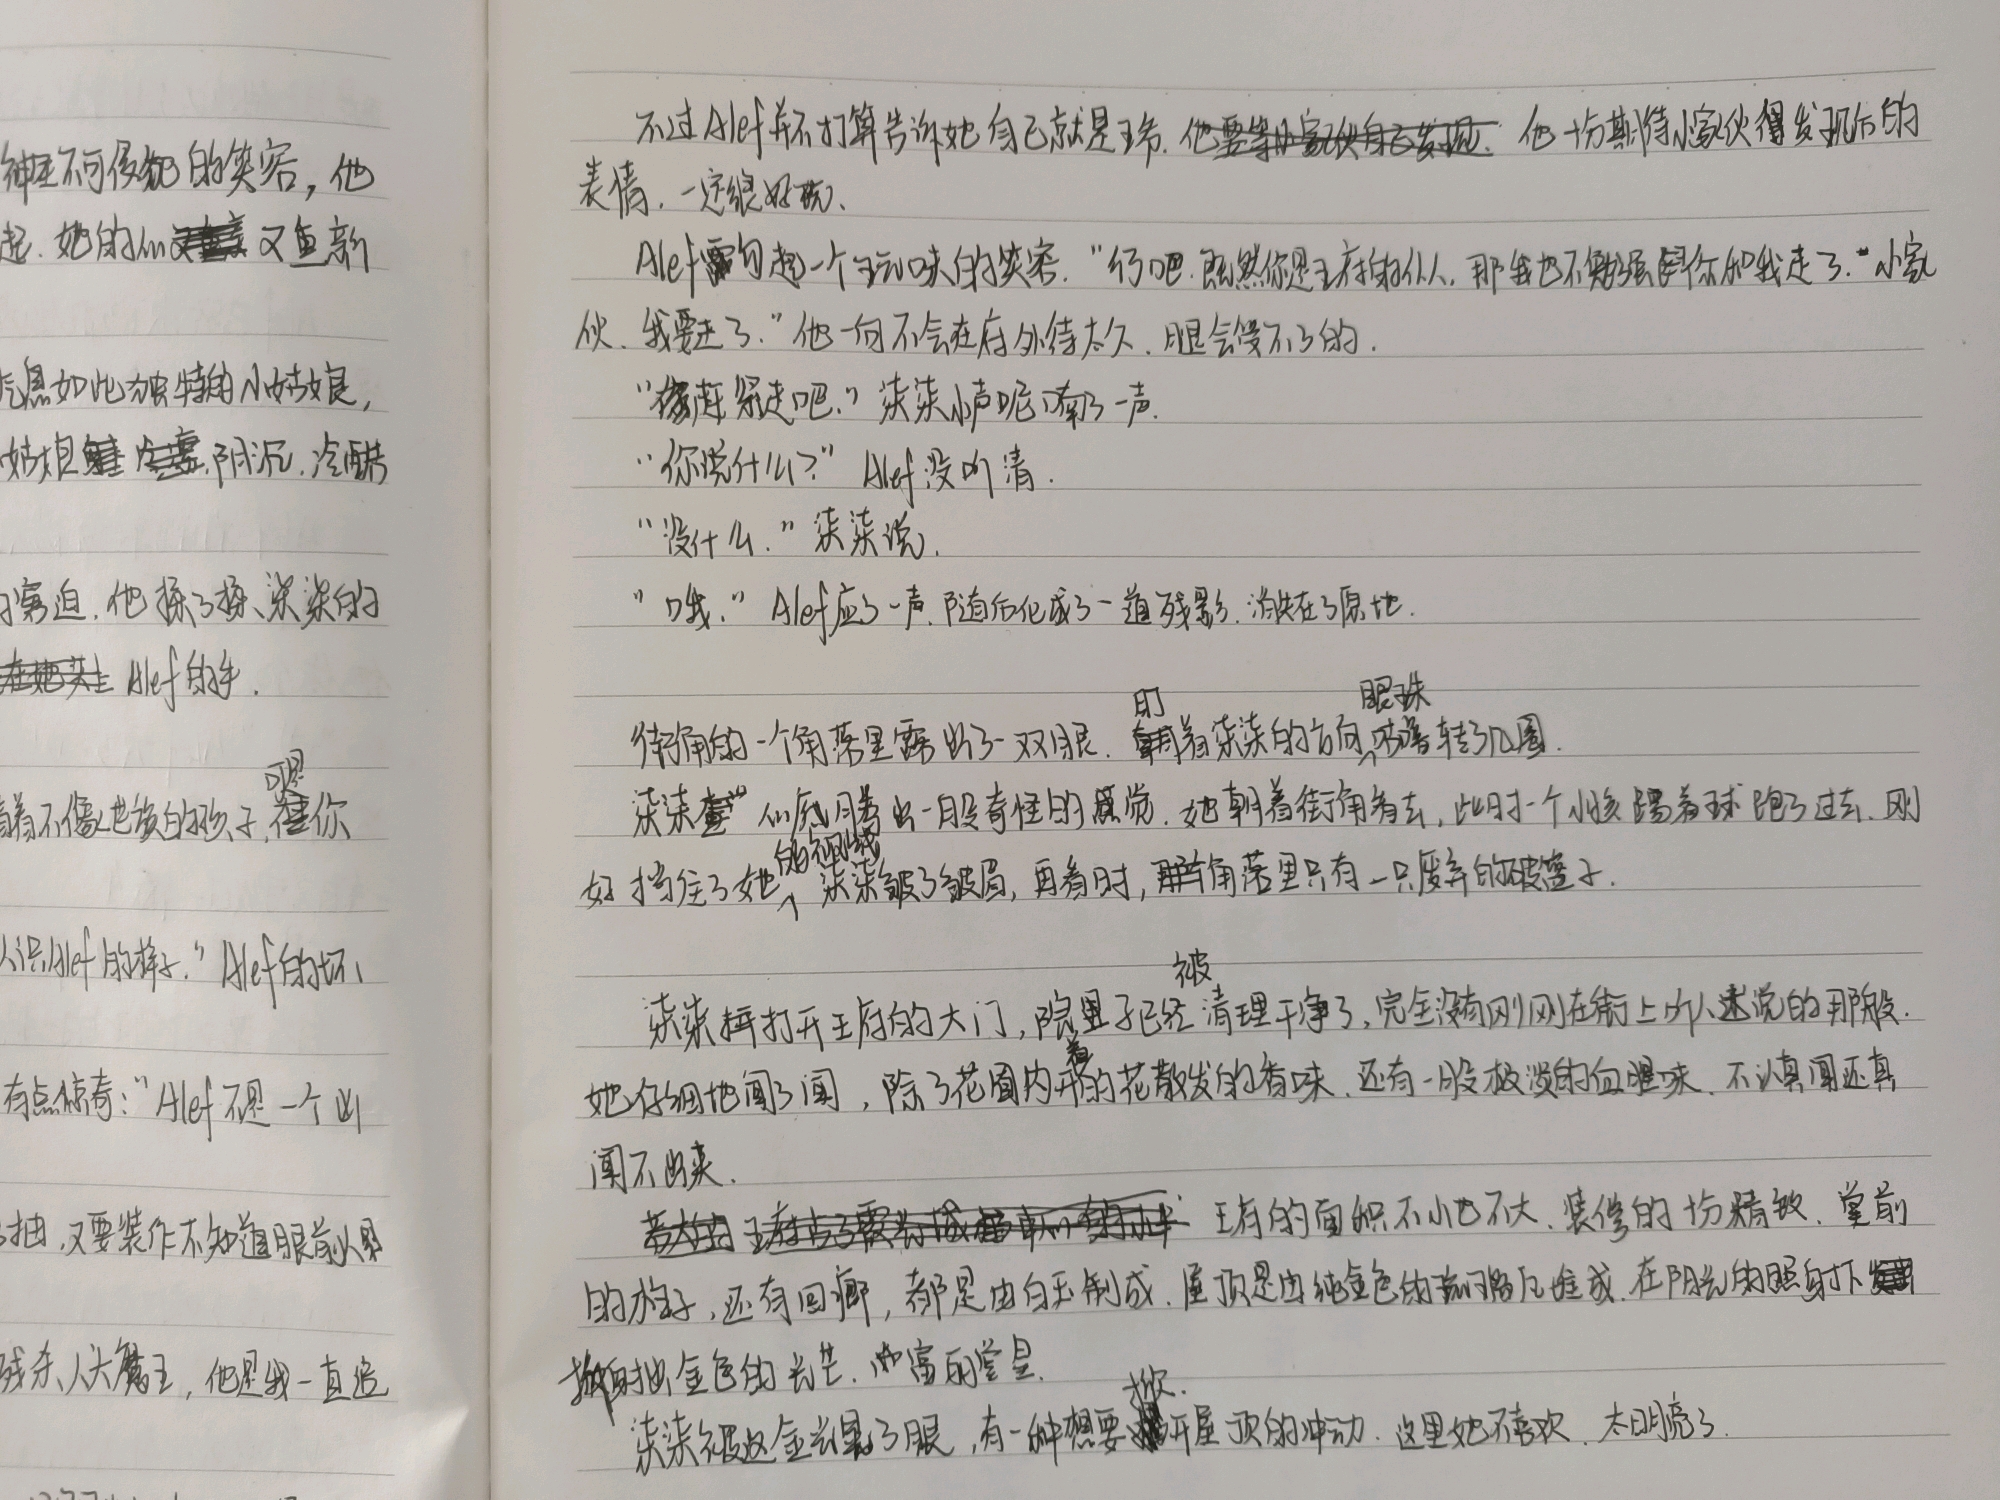 神圣不可侵犯的笑容，他
起.她的
又鱼新
气息如此独特的小姑娘，
阴沉.冷酷
窘迫.他揉了揉、柒柒的
Alef的手.
着不像地
的孩子,
你
认识Alef的样子.” Alef的坏、
有点惊奇：“Alef不是一个
抽,又要装作不知道眼前
残杀人大魔王，他是我一直追
不过Alef并不打算告诉她自己就是 他 他十分期待小家伙得发现后的
表情.一定很好玩.
Alef 勾起一个玩味的笑容.“行吧.既然你是王府的仆人.那我也不勉强 你和我走了.“小家
伙.我要走了.”他一向不会在府外待太久.腿会受不了的.
“ 赶紧走吧.”柒柒小声呢喃了一声.
“你说什么?” Alef没听清.
“没什么.”柒柒说.
“哦.” Alef应了一声.随后化成了一道残影.消失在了原地.
街角的一个角落里露出了一双眼. 着柒柒的方向眼珠 转了几圈.
柒柒 出一股奇怪的感觉.她朝着街角看去，此时一个小孩踢着球跑了过去.刚
好挡住了她的视线 柒柒皱了皱眉,再看时, 角落里只有一只废弃的破篮子.
柒柒 打开王府的大门,院里子已经被清理干净了,完全没有刚刚在街上 人 说的那般.
她仔细地闻了闻,除了花园内开着的花散发的香味.还有一股极淡的血腥味.不认真闻还真
闻不出来.
王府的面积不小也不大.装修的十分精致.堂前
的柱子,还有回廊,都是由白玉制成.屋顶是由纯金色的琉璃瓦堆成.在阳光的照射下
射出金色的光芒. 富丽堂皇.
柒柒被这金光晃了眼,有一种想要掀开屋顶的冲动.这里她不喜欢.太明亮了.